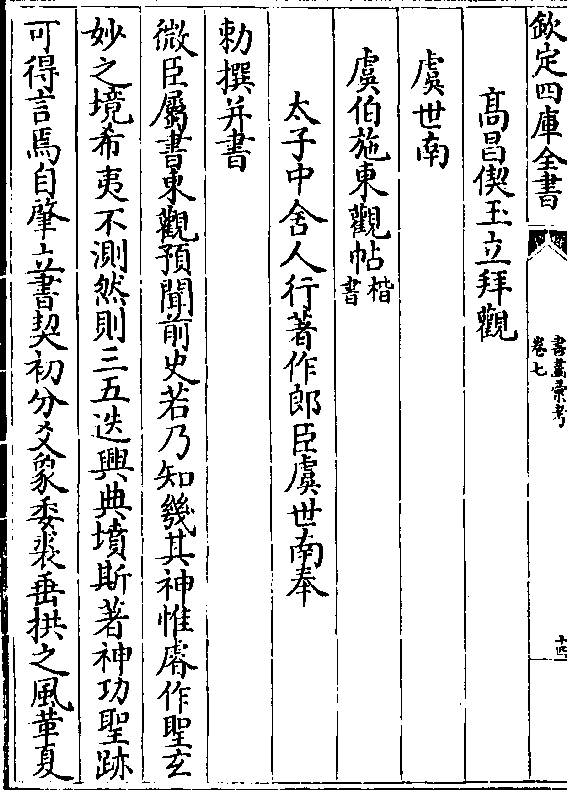 欽定四庫全書
書畫彚考
卷七
十四
髙昌偰玉立拜觀
虞世南
虞伯施東觀帖楷書
太子中舍人行著作郎臣虞世南奉
勅撰并書
微臣屬書東觀預聞前史若乃知幾其神惟睿作聖玄
妙之境希夷不測然則三五迭興典墳斯著神功聖跡
可得言焉自肇立書契初分爻象委裘垂拱之風革夏